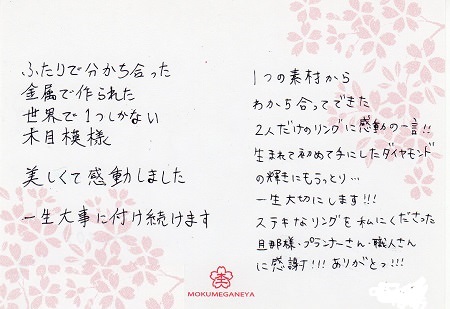 ふたりで分かち合った
金属で作られた
世界で1つしかない
木目模様
美しくて感動しました
一生大事に付け続けます
1つの素材から
わかち合ってできた
2人だけのリングに感動の一言!!
生まれて初めて手にしたダイヤモンド
の輝きにもうっとり…
一生大切にします!!!
ステキなリングを私にくださった
旦那様・プランナーさん・職人さん
に感謝!!! ありがとっ!!!
MOKUMEGANEYA